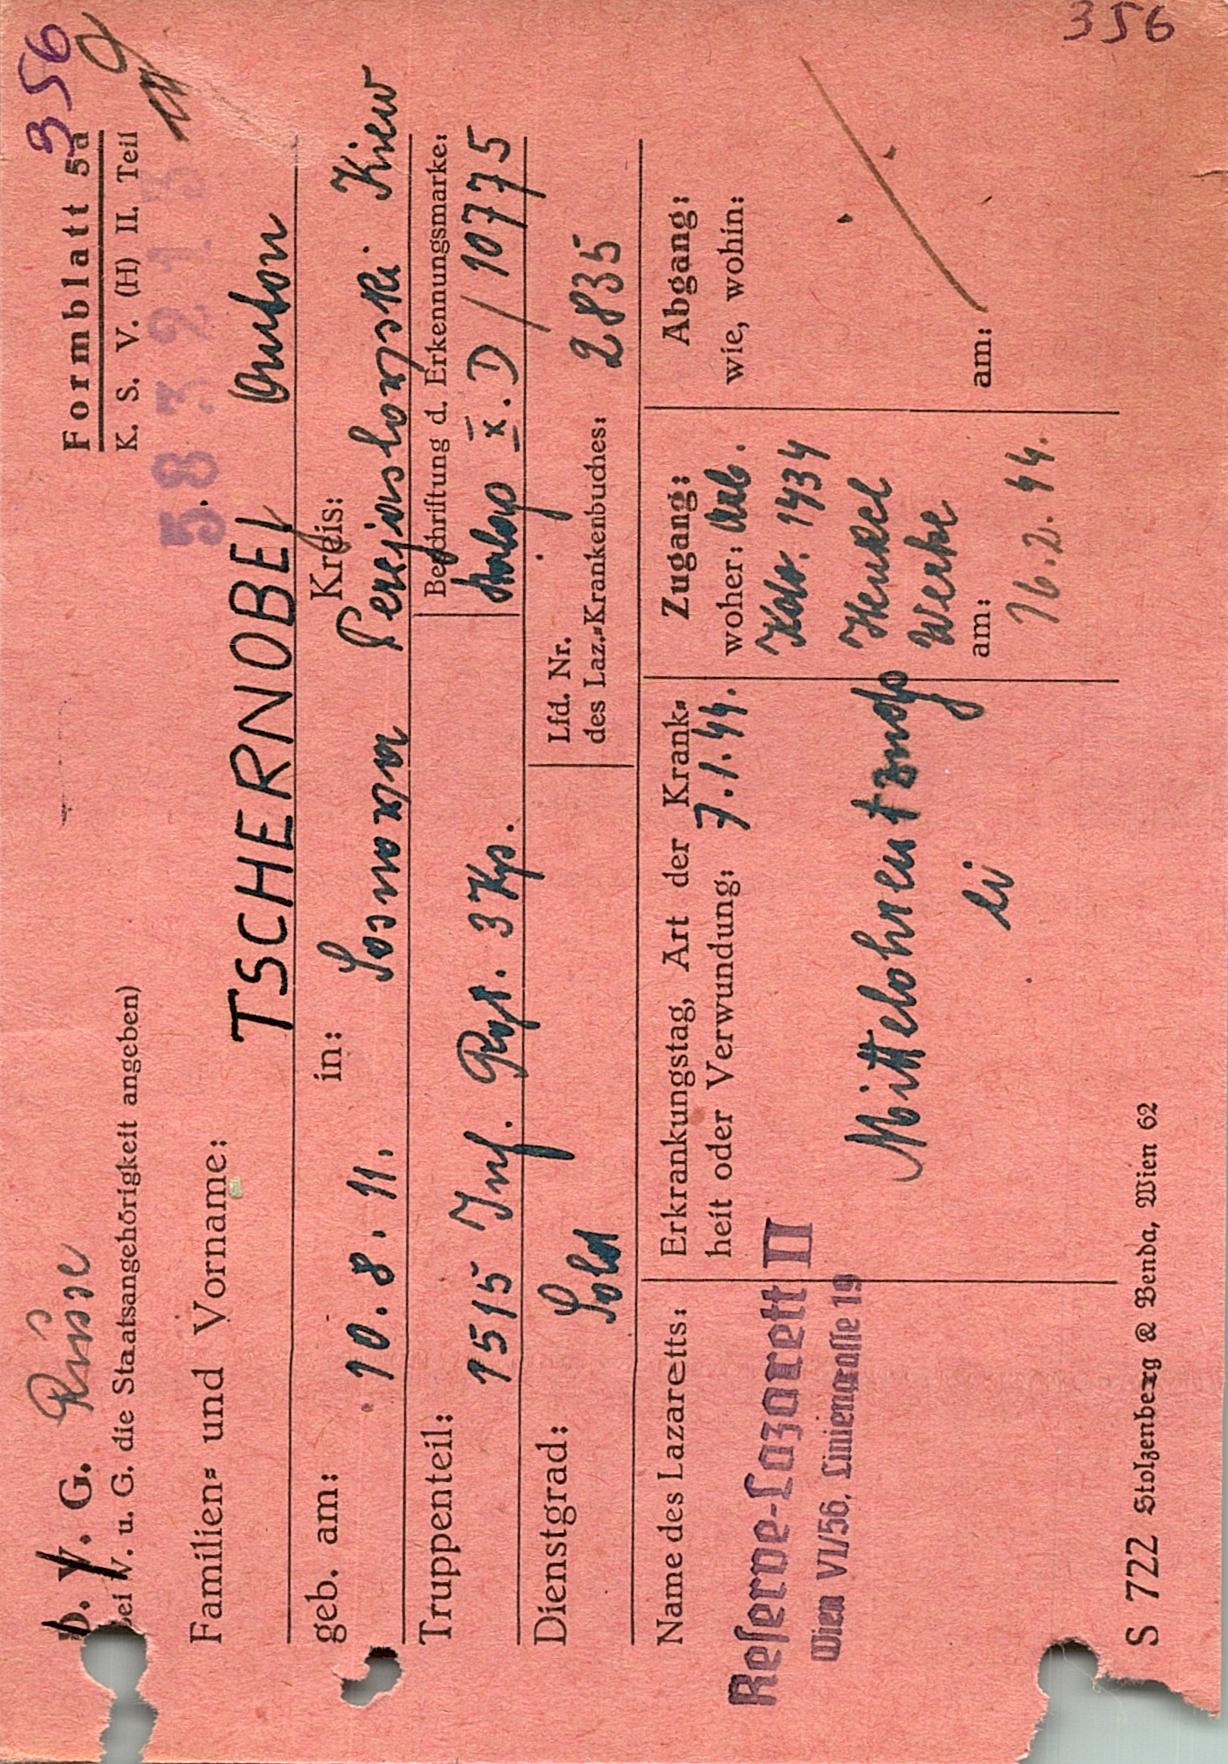 356
D. V. G. Russe
Formblatt 5a
(bei V. u. G. die Staatsangehörigkeit angeben)
K. S. V. (H) II. Teil
583213
Familien- und Vorname:
TSCHERNOBEL Anton
geb. am: in: Kreis:
10.8.11. Sosnowa Perejaslowski. Kiew
Truppenteil: Beschriftung d. Erkennungsmarke:
1515 Inf. Rgt. 3 Kp. Stalag XI.D/10775
Dienstgrad: Lfd. Nr.
des Laz.-Krankenbuches:
Sold 2835
Name des Lazaretts:
Reserve-Lazarett II
Wien VI/56, Liniengasse 19
Erkrankungstag, Art der Krank-
heit oder Verwundung: 7.1.44.
Mittelohrentzndg
li
Zugang:
woher: Arb.
Kdo. 1434
Henkel
Werke
am:
16.2.44.
Abgang:
wie, wohin:
am:
356
S 722 Stolzenberg & Benda, Wien 62